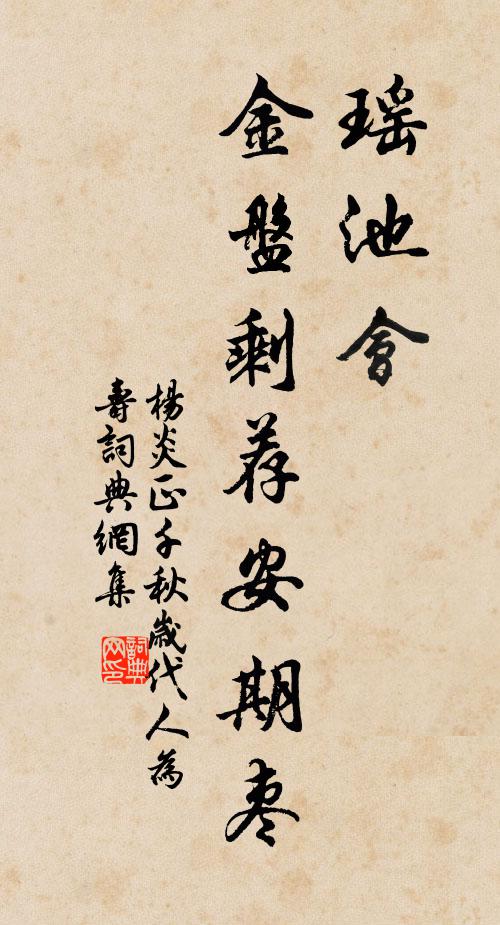 瑶池會
金盤剩荐安期枣
楊炎正千秋歲代人為
壽詞典網集
詞典
网印